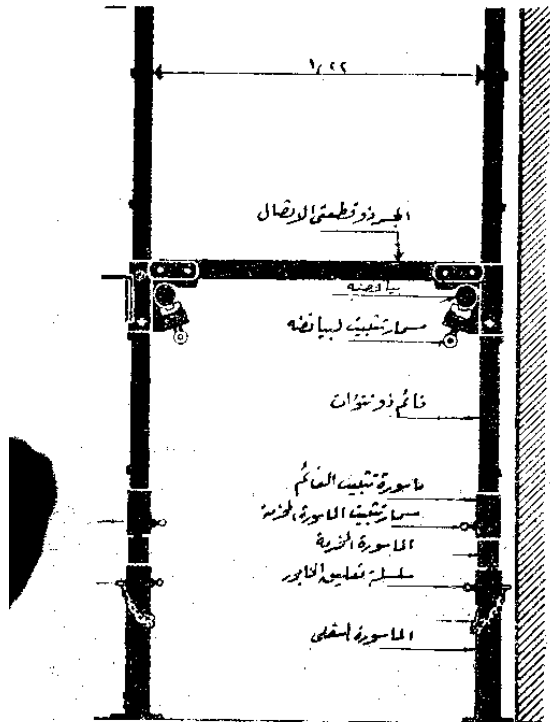 ١,٢٢
الجسر ذو قطعتى الاتصال
بياضنه
مسمار تثبيت لبياضنه
قائم ذو نتوءات
ماسورة تثبيت القائم
مسمار تثبيت الماسورة المخرمة
الماسورة المخرمة
سلسلة تعليق الخابور
الماسورة السفلى